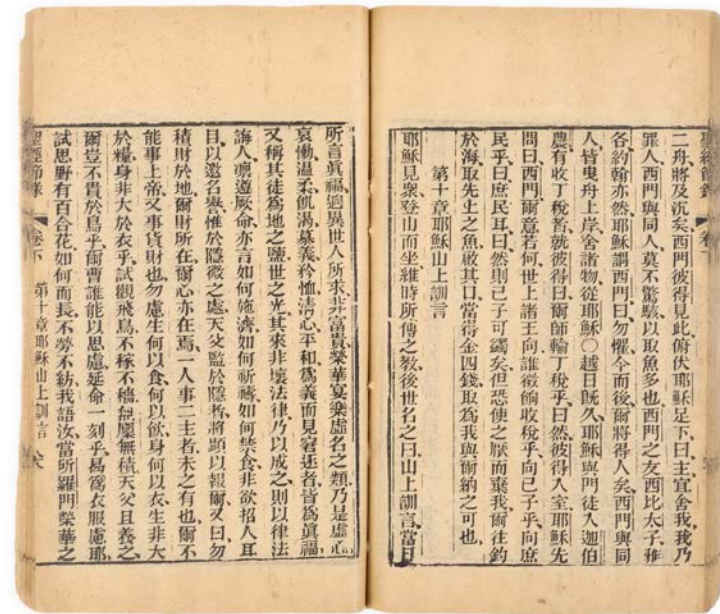 聖經節錄 卷下
二舟將及沉矣、西門彼得見此俯伏耶穌足下曰、主宜舍我、我乃
罪人、西門與同人、莫不驚駭、以取魚多也、西門之友西比太子雅
各約翰亦然、耶穌謂西門曰、勿懼、今而後爾將得人矣、西門與同
人皆曳舟上岸、舍諸物從耶穌、〇越日既久、耶穌與門徒入迦伯
農、有收丁稅者、就彼得曰、爾師輸丁稅乎、曰然、彼得入室、耶穌先
問曰、西門爾意若何、世上諸王向誰徵餉收稅乎、向己子乎、向庶
民乎、曰庶民耳、曰然則己子可蠲矣、但恐使之厭而棄我、爾往釣
於海、取先上之魚、啟其口、當得金四錢、取爲我與爾納之可也、
第十章耶穌山上訓言
耶穌見衆、登山而坐、維時所傳之教、後世名之曰山上訓言、當日
所言眞福、迥異世人所求、非富貴榮華宴樂虛名之類、乃是虛心、
哀慟、温柔、飢渴慕義、矜恤、清心、平和、爲義而見窘逐者、皆爲眞福、
又稱其徒爲地之鹽、世之光、其來非壞法律、乃以成之、則以律法
誨人、凜遵厥命、亦言如何施濟、如何祈禱、如何禁食、非欲招人耳
目以邀名譽、惟於隱微之處、天父監於隱者、將顯以報爾、又曰、勿
積財於地、爾財所在、爾心亦在焉、一人事二主者、未之有也、爾不
能事上帝、又事貨財也、勿慮生何以食、何以飲、身何以衣、生非大
於糧、身非大於衣乎、試觀飛鳥、不稼不穡、無廩無積、天父且養之、
爾豈不貴於鳥乎、爾曹誰能以思慮延命一刻乎、曷爲衣服慮耶、
試思野有百合花、如何而長、不勞不紡、我語汝、當所羅門榮華之
聖經節錄 卷下 第十章耶穌山上訓言 六